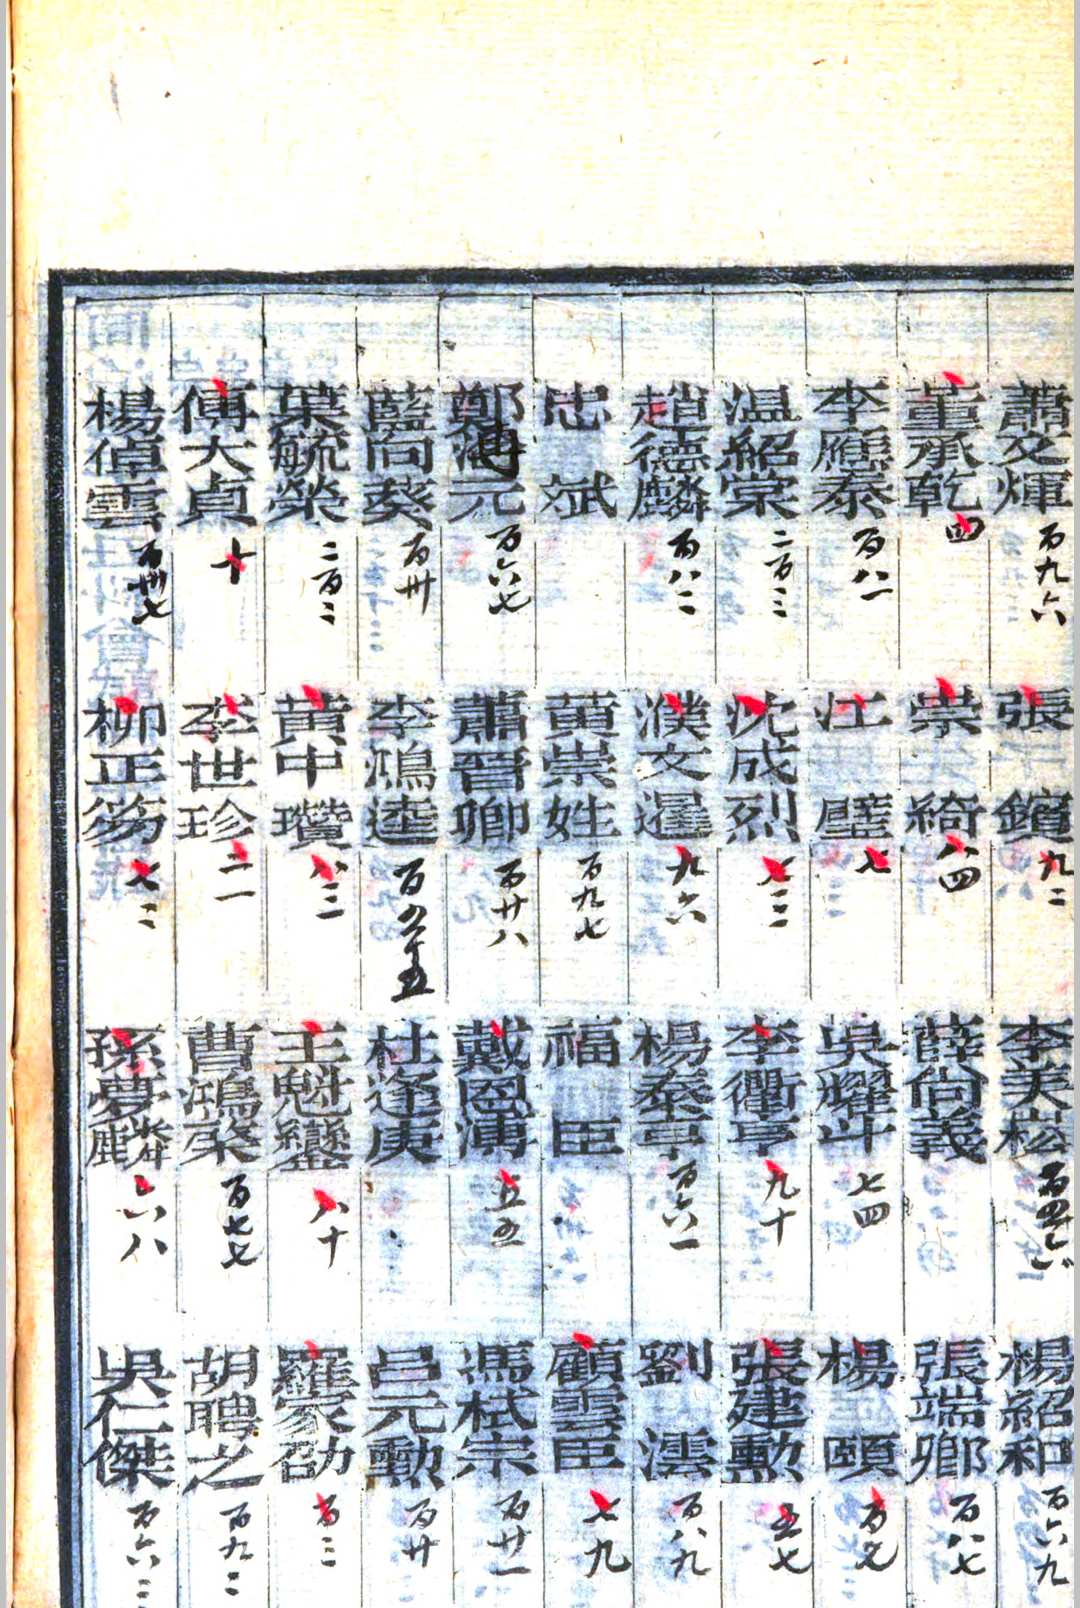 蕭文煇 百九六 張 九二 李美崧 楊紹和 百六九
董承乾 四 崇綺 八四 薛尙義 張端卿 百八七
李應泰 百八一 江璧 七 吳耀斗 七四 楊頤
温紹棠 二百三 沈成烈 七三 李衢亨 九十 張建勳 五七
趙德麟 百八二 濮文暹 九六 楊泰亨 百六一 劉澐 百八九
忠斌 黃崇姓 百九七 福臣 顧雲臣 七九
鄭溥元 百六七 蕭晉卿 百廿八 戴恩溥 五五 馮栻宗 百廿一
藍向葵 百卅 李鴻逵 杜逢庚 呂元勳 百廿
葉毓榮 二百二 黃中瓚 八三 王魁鑾 八十 羅家劭 百三
傅大貞 十 李世珍 二一 曹鴻棨 百七七 胡聘之 百九二
楊倬雲 百卅七 柳正笏 七二 孫夢麟 六八 吳仁傑 百六三